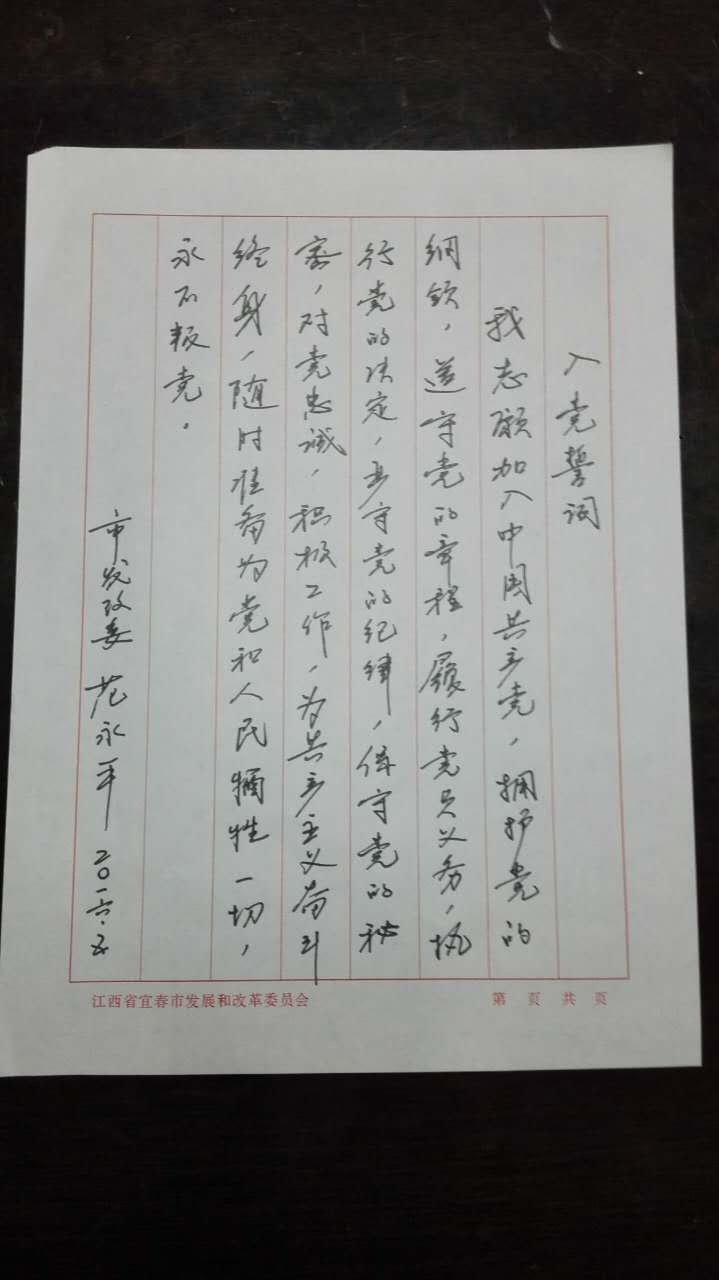 入党誓词
我志愿加入中国共产党，拥护党的
纲领，遵守党的章程，履行党员义务，执
行党的决定，严守党的纪律，保守党的秘
密，对党忠诚，积极工作，为共产主义奋斗
终身，随时准备为党和人民牺牲一切，
永不叛党。
市发改委 范永平 二〇一六.五
江西省宜春市发展和改革委员会
第 页 共 页